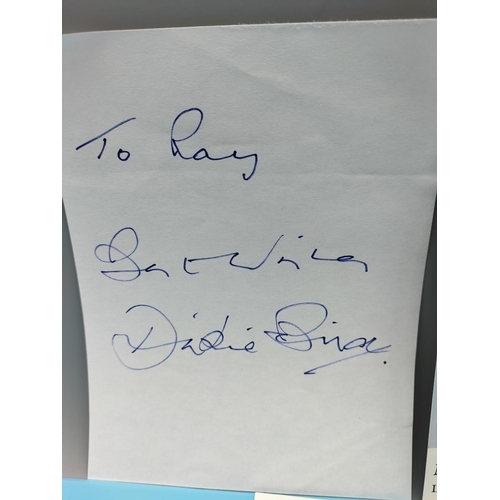 To Ray
Best Wishes
Dickie Bird